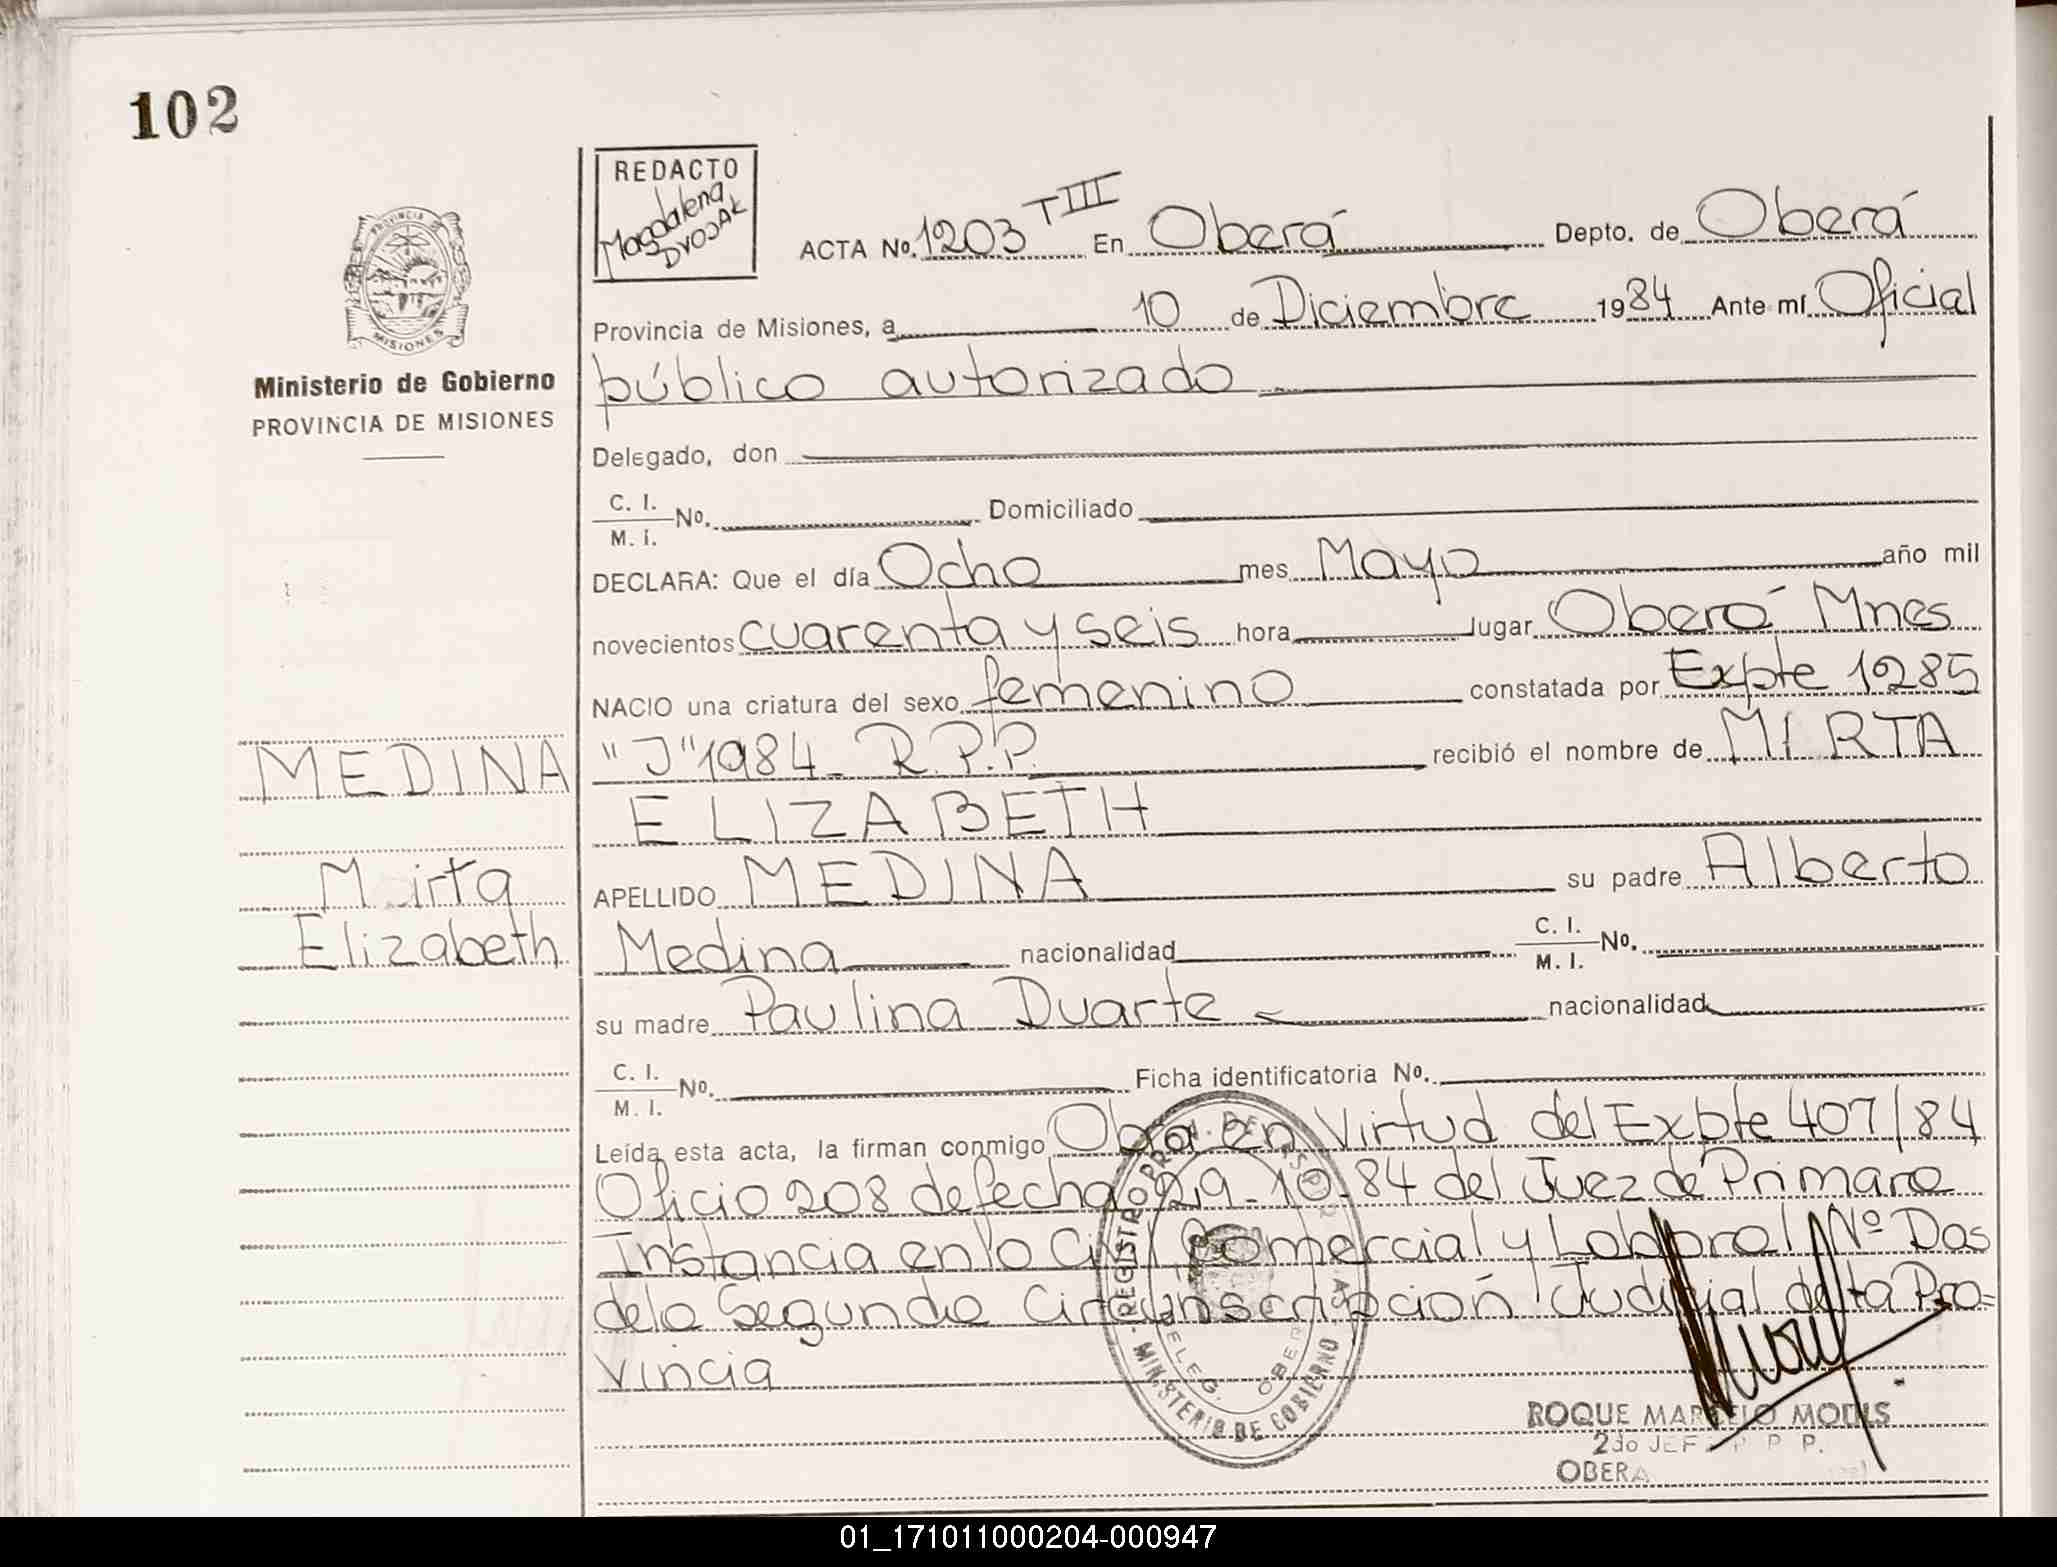 102
REDACTO
Magdalena
DVOJAK
PROVINCIA DE
MISIONES
Ministerio de Gobierno
PROVINCIA DE MISIONES
ACTA No. 1203 TIII En Oberá Depto. de Oberá
Provincia de Misiones, a 10 de Diciembre 1984 Ante mí Oficial
público autorizado
Delegado, don
C. I.
M. I. No. Domiciliado
DECLARA: Que el día Ocho mes Mayo año mil
novecientos cuarenta y seis hora lugar Oberá Mnes
NACIO una criatura del sexo femenino constatada por Expte 1285
"J" 1984 R.P.P. recibió el nombre de MIRTA
ELIZABETH
APELLIDO MEDINA su padre Alberto
Medina nacionalidad C. I. M. I. No.
su madre Paulina Duarte nacionalidad
C. I.
M. I. No. Ficha identificatoria No.
Leída esta acta, la firman conmigo Obra en Virtud del Expte 407/84
Oficio 208 de fecha 29-10-84 del Juez de Primara
Instancia en lo Civil Comercial y Laboral Nº Dos
de la Segunda Circunscripción Judicial de la Pro=
vincia
MEDINA
Mirta
Elizabeth
MINISTERIO DE GOBIERNO
DELEG. OBERA
ROQUE MARCELO
2do JEFE R. P. P.
OBERA
01_171011000204-000947